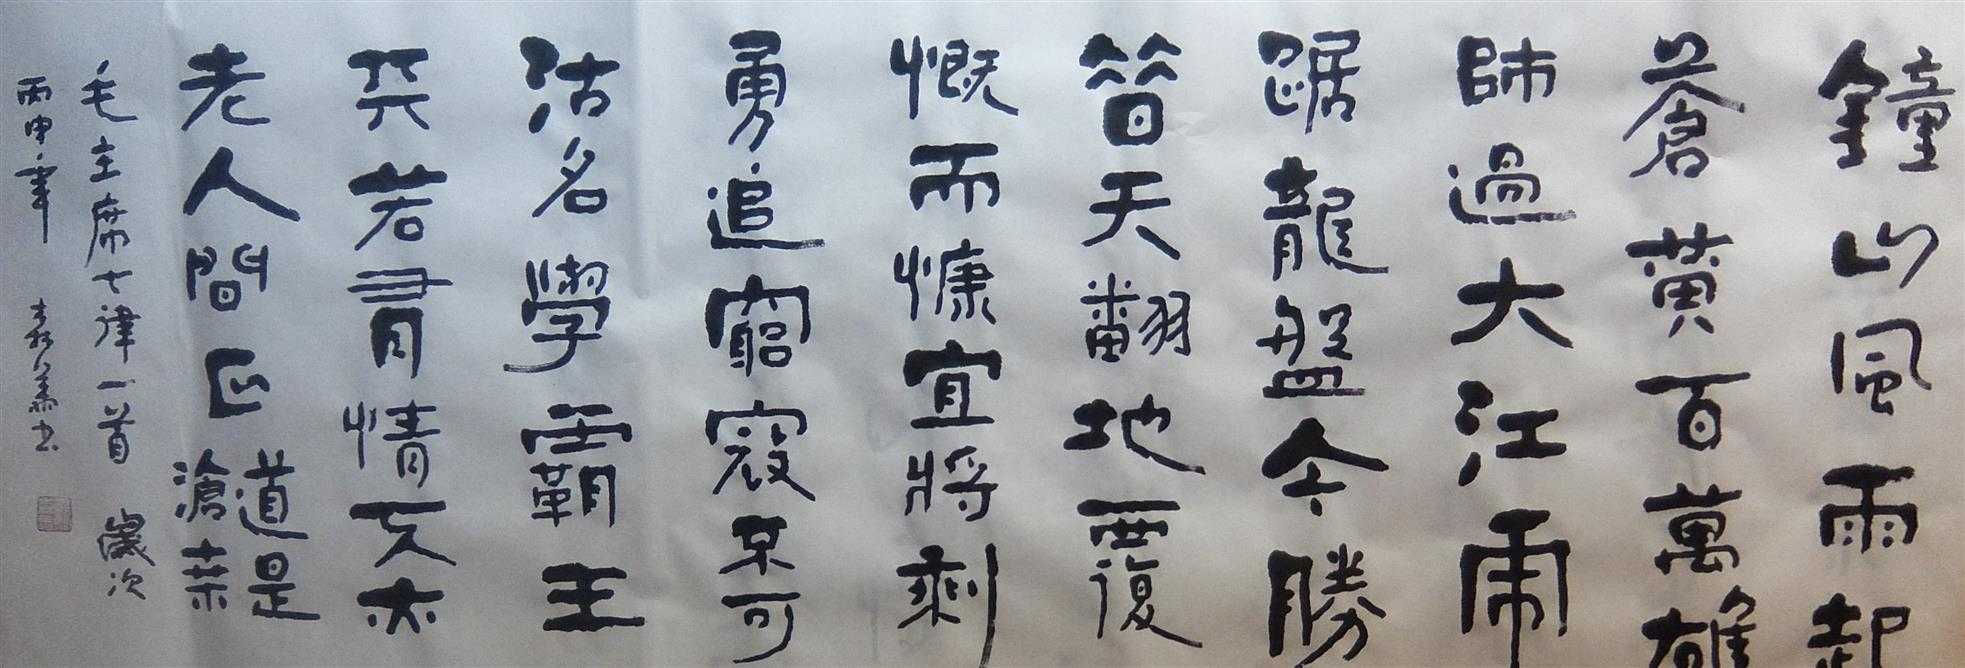 鐘山風雨起
蒼黃百萬雄
師過大江虎
踞龍盤今勝
昔天翻地覆
慨而慷宜將剩
勇追窮寇不可
沽名學霸王
天若有情天亦
老人間正道是滄桑
毛主席七律一首 歲次
丙申年 書